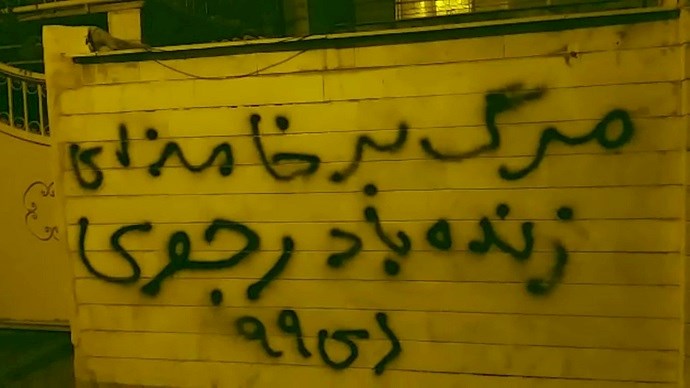 مرگ بر خامنه ای
زنده باد رجوی
دی ۹۹